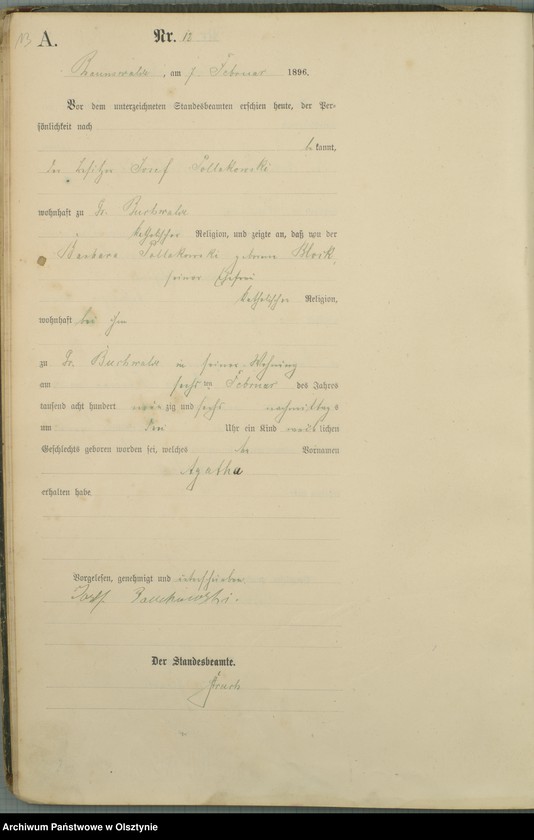 A.
Nr. 12
Braunswalde, am 7 Februar 1896.
Vor dem unterzeichneten Standesbeamten erschien heute, der Per-
sönlichkeit nach
bekannt,
der Besitzer Josef
wohnhaft zu Gr. Buchwalde
katholischer Religion, und zeigte an, daß von der
Barbara geborene
seiner Ehefrau
katholischer Religion,
wohnhaft bei ihm
zu Gr. Buchwalde in seiner Wohnung
am sechsten Februar des Jahres
tausend acht hundert neunzig und sechs nachmittags
um drei Uhr ein Kind weiblichen
Geschlechts geboren worden sei, welches den Vornamen
Agatha
erhalten habe
Vorgelesen, genehmigt und unterschrieben
Josef
Der Standesbeamte.
Archiwum Państwowe w Olsztynie